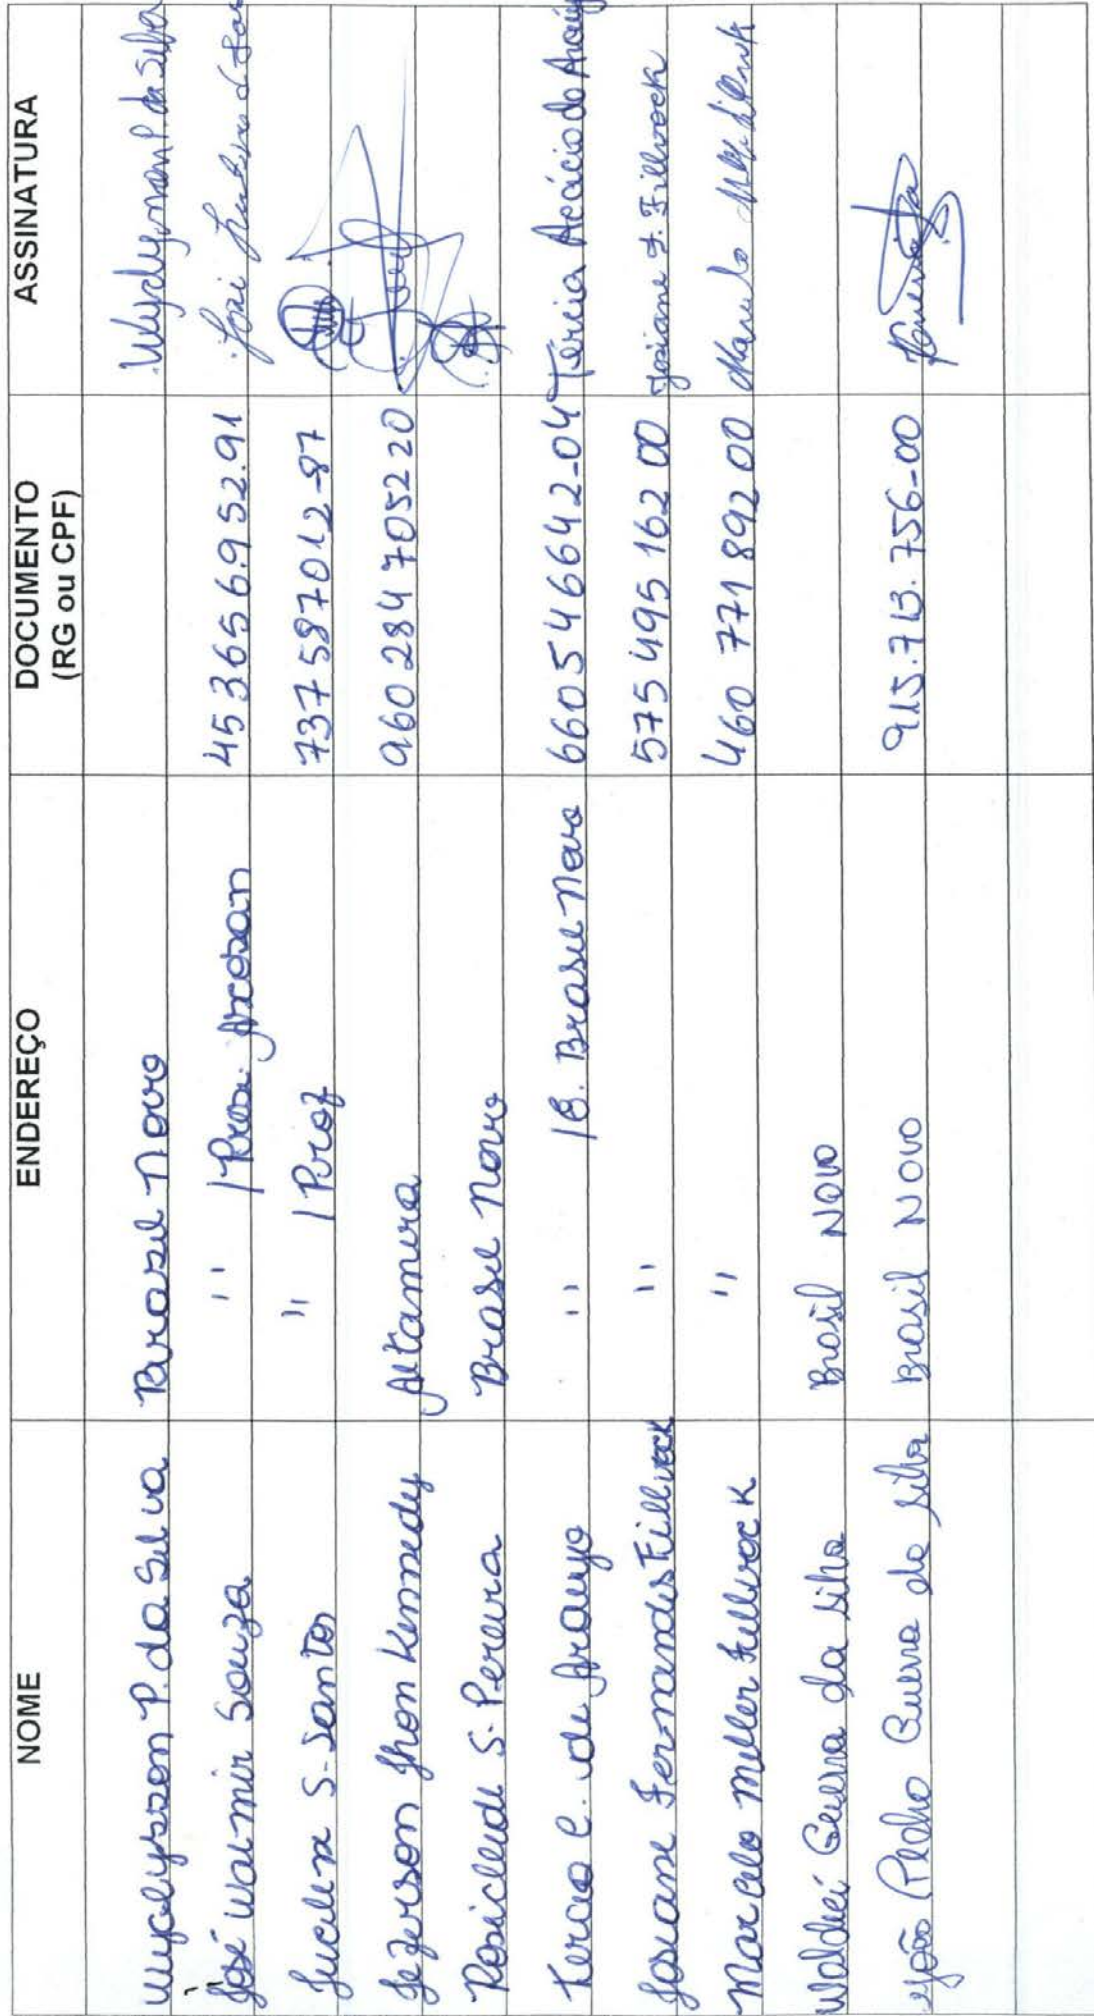 NOME ENDEREÇO DOCUMENTO (RG ou CPF) ASSINATURA
P. da Silva Brasil Novo P. da Silva
José Walmir Souza " / 453656.952.91 José
Jucilene S. Santos " / Prof 737587012-87
Jeferson Jhon Kennedy Altamira 960 284 7052 20
Rosicleude S. Pereira Brasil Novo
Tercia C. de Araujo " /B. Brasil Novo 660546642-04 Tércia Acácio do Arauj
Josiane Fernandes Fillvock " 575 495 162 00 Josiane F. Fillvock
Marcelo Miller Fullvock " 460 771 892 00
Guerra da Silva Brasil Novo
João Pedro Guerra da Silva Brasil Novo 915.713.756-00